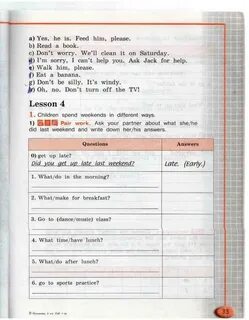 a) Yes, he is. Feed him, please.
b) Read a book.
c) Don't worry. We'll clean it on Saturday.
d) I'm sorry, I can't help you. Ask Jack for help.
e) Walk him, please.
f) Eat a banana.
g) Don't be silly. It's windy.
h) Oh, no. Don't turn off the TV!
Lesson 4
1. Children spend weekends in different ways.
1) Pair work. Ask your partner about what she/he
did last weekend and write down her/his answers.
Questions Answers
0) get up late?
Did you get up late last weekend? Late. (Early.)
1. What/do in the morning?
2. What/make for breakfast?
3. Go to (dance/music) class?
4. What time/have lunch?
5. What/do after lunch?
6. go to sports practice?
13